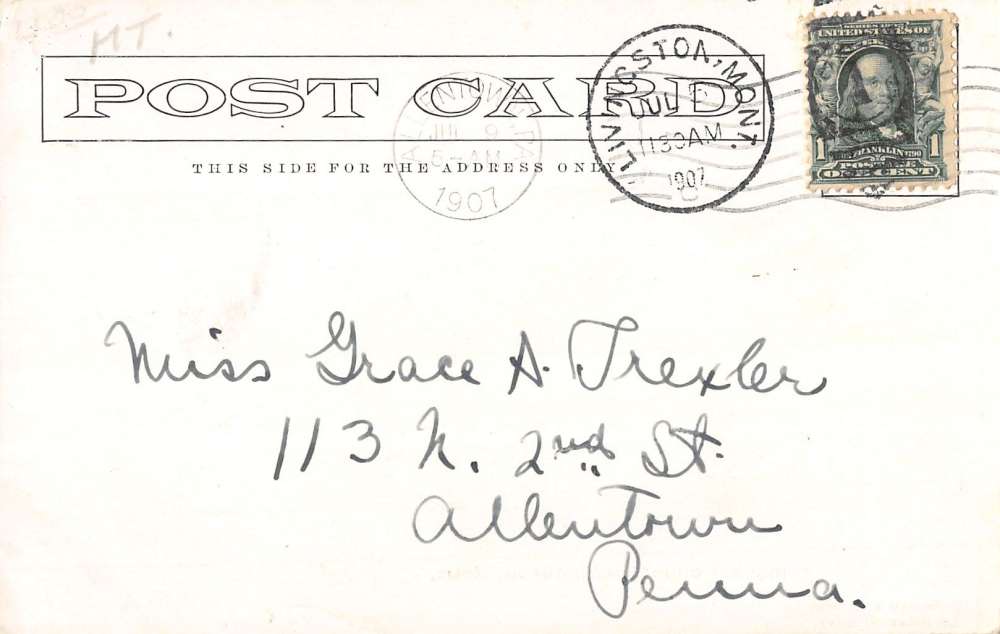 MT.
POST CARD
THIS SIDE FOR THE ADDRESS ONLY
ALLENTOWN, PA.
JUL 9
5-AM
1907
LIVINGSTON, MONT.
JUL
1130AM
1907
SERIES 1902
UNITED STATES OF
AMERICA
FRANKLIN 1790
POSTAGE
1 ONE CENT 1
Miss Grace A. Trexler
113 N. 2nd St.
Allentown
Penna.